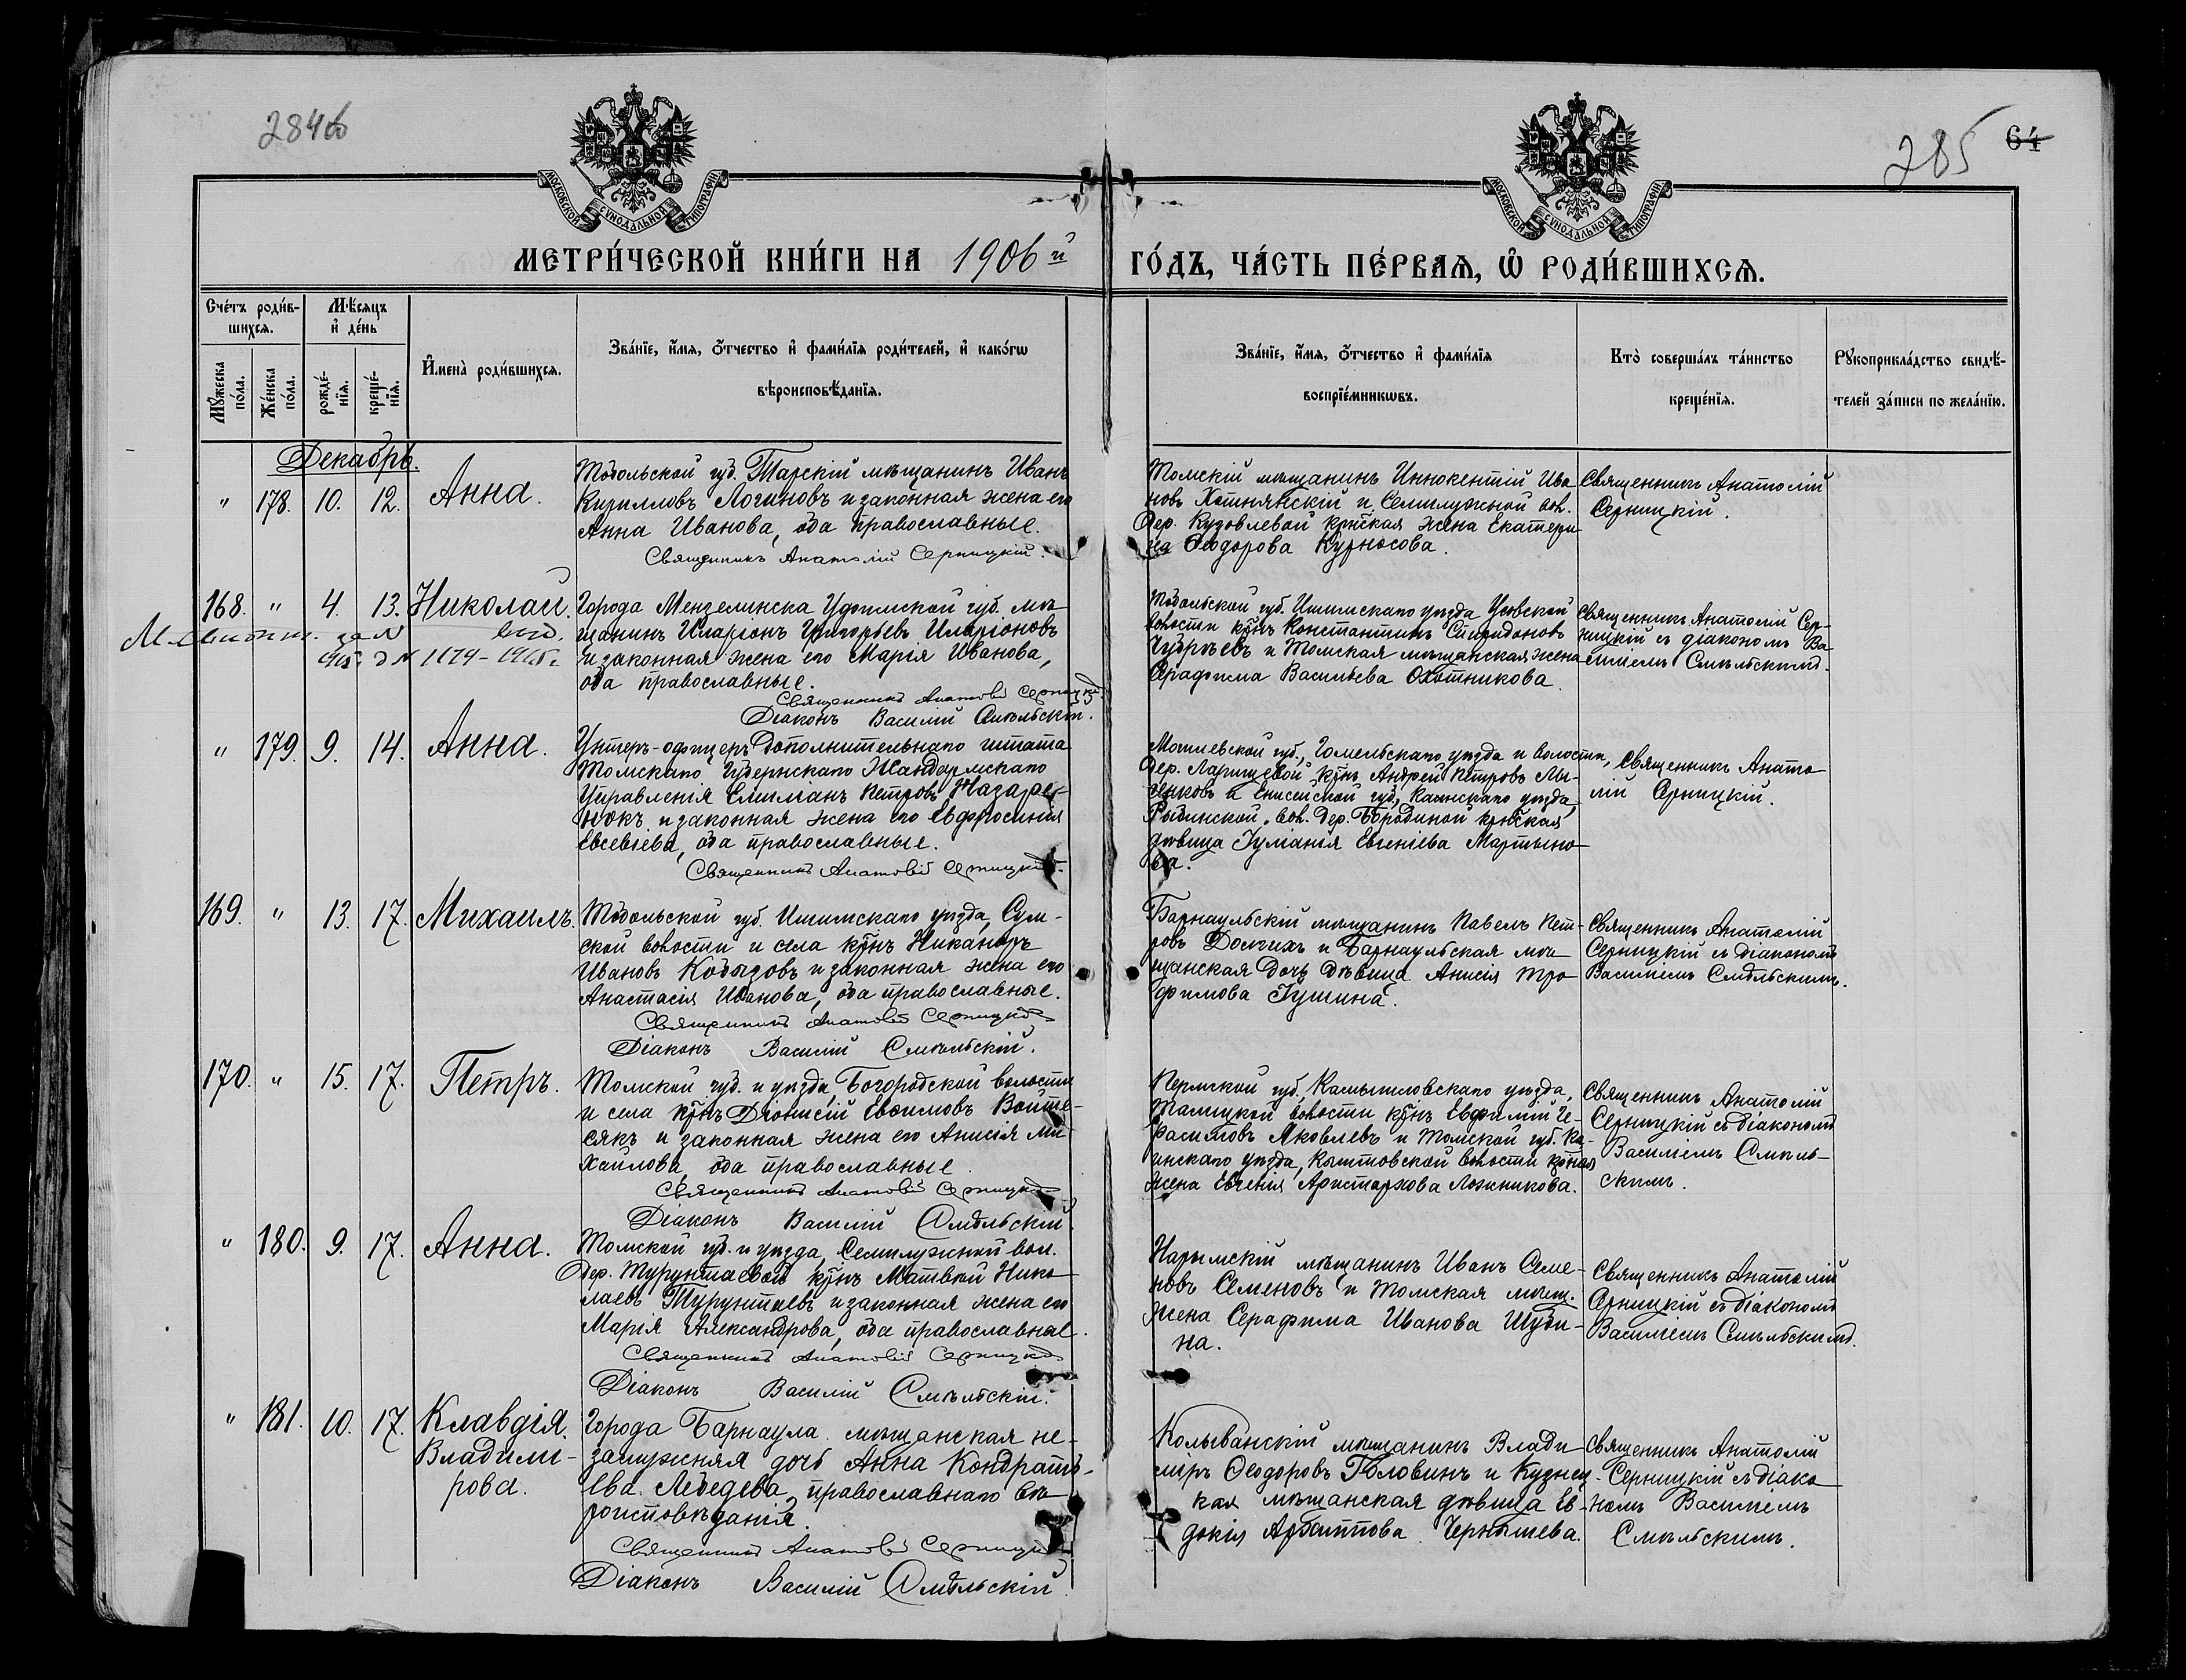 284об
285
64
МОСКОВСКОЙ СѴНОДАЛЬНОЙ ТИПОГРАФІИ
МОСКОВСКОЙ СѴНОДАЛЬНОЙ ТИПОГРАФІИ
МЕТРИ́ЧЕСКОЙ КНИ́ГИ НА 1906й ГО́ДЪ, ЧА́СТЬ ПЕ́РВАѦ, Ѡ҆ РОДИ́ВШИХСѦ.
Сче́тъ роди́в-
шихсѧ.
Мѣ́сѧцъ
и҆ де́нь
Мꙋ́жеска
по́ла.
Же́нска
по́ла.
рожде́-
нїѧ.
креще́-
нїѧ.
И҆мена̀ роди́вшихсѧ.
Зва́нїе, и҆́мѧ, ѻ҆́тчество и҆ фами́лїѧ роди́телей, и҆ како́гѡ
вѣроисповѣ́данїѧ.
Зва́нїе, и҆́мѧ, ѻ҆́тчество и҆ фами́лїѧ
воспрїе́мникѡвъ.
Кто̀ соверша́лъ та́инство
креще́нїѧ.
Рꙋкоприкла́дство свидѣ́-
телей за́писи по жела́нїю.
Декабрь.
" 178. 10. 12. Анна.
Тобольской губ. Тарскій мѣщанинъ Иванъ
Кирилловъ Логиновъ и законная жена его
Анна Иванова, оба православные.
Священникъ Анатолій Серницкій.
Томскій мѣщанинъ Иннокентій Ива
новъ Хотнянскій и Семилужной вол.
дер. Кузовлевой крнская жена Екатери
на Ѳеодорова Курносова.
Священникъ Анатолій
Серницкій.
168. " 4. 13. Николай.
за №
1179-
Города Мензелинска Уфимской губ. мѣ
щанинъ Иларіонъ Григорьевъ Иларіоновъ
и законная жена его Марія Иванова,
оба православные.
Священникъ Анатолій Серницкій
Діаконъ Василій Смѣльскій.
Тобольской губ. Ишимскаго уѣзда Усовской
волости крнъ Константинъ Спиридоновъ
и Томская мѣщанская жена
Серафима Васильева Охотникова.
Священникъ Анатолій Сер-
ницкій съ діакономъ Ва
силіемъ Смѣльскимъ.
" 179. 9. 14. Анна.
Унтеръ-офицеръ дополнительнаго штата
Томскаго Губернскаго Жандармскаго
Управленія Петровъ Назаре-
нокъ и законная жена его Евфросинія
Евсевіева, оба православные.
Священникъ Анатолій Серницкій.
Могилевской губ., Гомельскаго уѣзда и волости,
дер. Ларищевой крнъ Андрей Петровъ Лы-
сенковъ и Енисейской губ., Канскаго уѣзда,
Рыбинской вол. дер. Бородиной крнская
дѣвица Іуліанія Евгеніева Мартыно-
ва.
Священникъ Анато
лій Серницкій.
169. " 13. 17. Михаилъ.
Тобольской губ. Ишимскаго уѣзда, Сум-
ской волости и села крнъ Никаноръ
Ивановъ Кобызовъ и законная жена его
Анастасія Иванова, оба православные.
Священникъ Анатолій Серницкій
Діаконъ Василій Смѣльскій.
Барнаульскій мѣщанинъ Павелъ Пет-
ровъ Долгихъ и Барнаульская мѣ
щанская дочь дѣвица Анисія Тро
фимова Гушина.
Священникъ Анатолій
Серницкій съ діакономъ
Василіемъ Смѣльскимъ.
170. " 15. 17. Петръ.
Томской губ. и уѣзда, Богородской волости
и села крнъ Діонисій Евѳимовъ Войте-
сякъ и законная жена его Анисія Ми
хайлова, оба православные.
Священникъ Анатолій Серницкій
Діаконъ Василій Смѣльскій.
Пермской губ. Камышловскаго уѣзда,
Талицкой волости крнъ Евфимій Ге-
расимовъ Яковлевъ и Томской губ. Ка-
инскаго уѣзда, Кыштовской волости крная
жена Евгенія Аристархова Ложникова.
Священникъ Анатолій
Серницкій съ діакономъ
Василіемъ Смѣль-
скимъ.
" 180. 9. 17. Анна.
Томской губ. и уѣзда, Семилужной вол.
дер. Турунтаевой крнъ Матвѣй Нико
лаевъ Турунтаевъ и законная жена его
Марія Александрова, оба православные.
Священникъ Анатолій Серницкій
Діаконъ Василій Смѣльскій.
Нарымскій мѣщанинъ Иванъ Семе-
новъ Семеновъ и Томская мѣщ.
жена Серафима Иванова Шуби-
на.
Священникъ Анатолій
Серницкій съ діакономъ
Василіемъ Смѣльскимъ.
" 181. 10. 17. Клавдія.
Владими-
рова.
Города Барнаула мѣщанская не-
замужняя дочь Анна Кондрать-
ева Лебедева, православнаго вѣ
роисповѣданія.
Священникъ Анатолій Серницкій
Діаконъ Василій Смѣльскій
Колыванскій мѣщанинъ Влади
міръ Ѳеодоровъ Головинъ и Кузнец-
кая мѣщанская дѣвица Ев-
докія Чернышева.
Священникъ Анатолій
Серницкій съ діако
номъ Василіемъ
Смѣльскимъ.